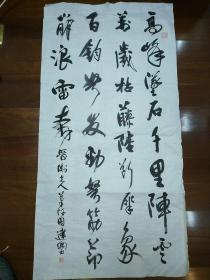 高峰墜石千里陣雲
萬歲枯藤陸斷犀象
百鈞弩發勁弩筋節
崩浪雷奔 晉衛夫人筆陣圖